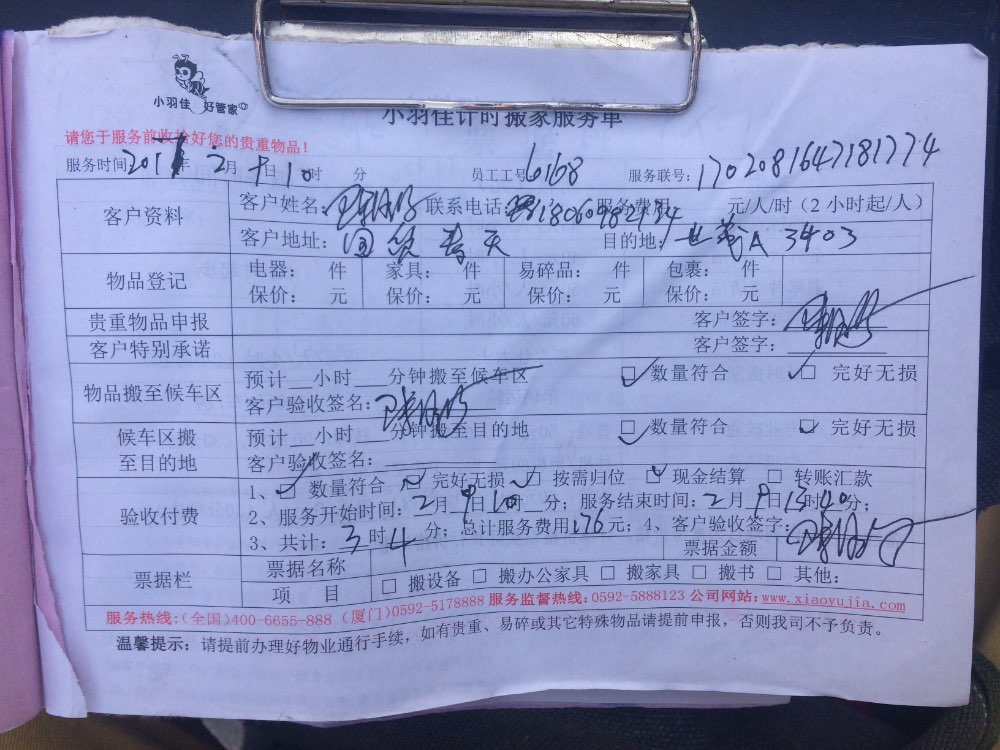 小羽佳 好管家
小羽佳计时搬家服务单
请您于服务前收捡好您的贵重物品！
服务时间 2017年 2月 9日 10时 分 员工工号 6168 服务联号: 1702081647181774
客户资料 客户姓名: 联系电话: 服务费用 元/人/时（2小时起/人）
客户地址: 国贸春天 目的地: 世茂A 3403
物品登记 电器: 件 家具: 件 易碎品: 件 包裹: 件
保价: 元 保价: 元 保价: 元 保价: 元
贵重物品申报 客户签字:
客户特别承诺 客户签字:
物品搬至候车区 预计__小时___分钟搬至候车区 ☑数量符合 ☑完好无损
客户验收签名:
候车区搬至目的地 预计__小时___分钟搬至目的地 ☑数量符合 ☑完好无损
客户验收签名:
验收付费 1、☑数量符合 ☑完好无损 ☑按需归位 ☑现金结算 □转账汇款
2、服务开始时间: 2月9日10时__分; 服务结束时间: 2月9日13时40分;
3、共计: 3时4分; 总计服务费用: 76元; 4、客户验收签字:
票据栏 票据名称 票据金额
项 目 □搬设备 □搬办公家具 □搬家具 □搬书 □其他:
服务热线:(全国)400-6655-888 (厦门)0592-5178888 服务监督热线: 0592-5888123 公司网站: www.xiaoyujia.com
温馨提示: 请提前办理好物业通行手续，如有贵重、易碎或其它特殊物品请提前申报，否则我司不予负责。